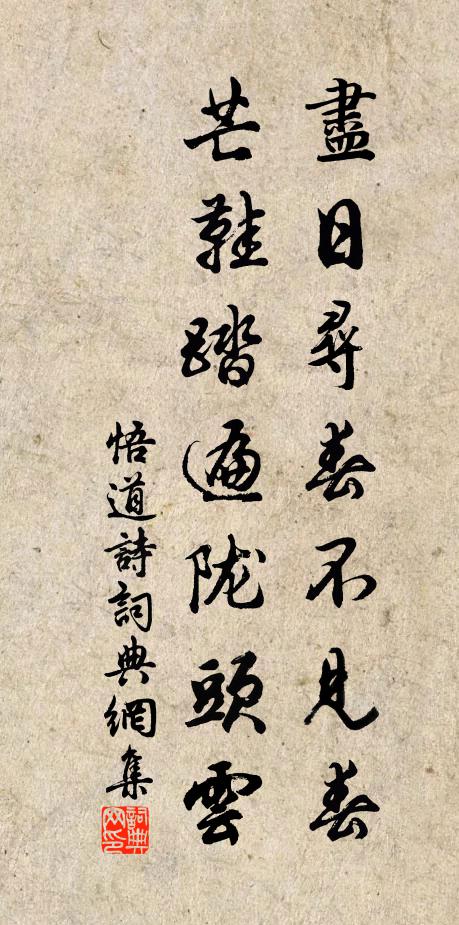 盡日尋春不見春
芒鞋踏遍陇頭雲
悟道詩詞典網集
詞典网印